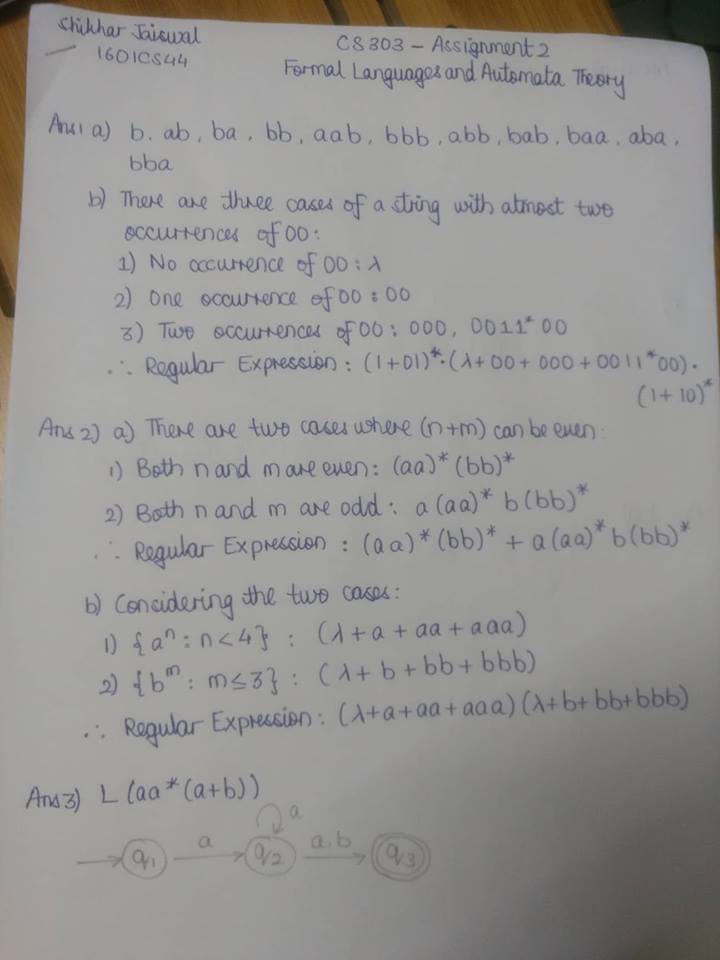 Shikhar Jaiswal
1601CS44
CS303 - Assignment 2
Formal Languages and Automata Theory
Ans1 a) b, ab, ba, bb, aab, bbb, abb, bab, baa, aba,
bba
b) There are three cases of a string with atmost two
occurrences of 00:
1) No occurrence of 00 : λ
2) One occurrence of 00 : 00
3) Two occurrences of 00 : 000, 0011*00
∴ Regular Expression : (1+01)*·(λ+00+000+0011*00)·
(1+10)*
Ans 2) a) There are two cases where (n+m) can be even:
1) Both n and m are even: (aa)*(bb)*
2) Both n and m are odd: a(aa)* b(bb)*
∴ Regular Expression : (aa)*(bb)* + a(aa)*b(bb)*
b) Considering the two cases:
1) {aⁿ : n<4} : (λ+a+aa+aaa)
2) {bᵐ : m≤3} : (λ+b+bb+bbb)
∴ Regular Expression: (λ+a+aa+aaa)(λ+b+bb+bbb)
Ans3) L(aa*(a+b))
a
a a,b
q1 q2 q3